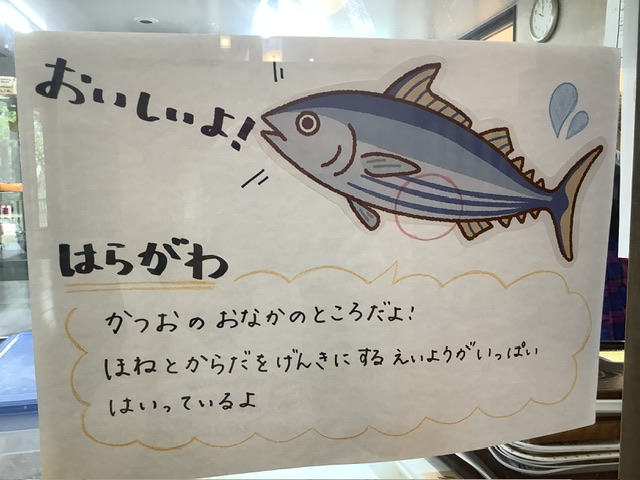 おいしいよ!
はらがわ
かつおのおなかのところだよ!
ほねとからだをげんきにするえいようがいっぱい
はいっているよ